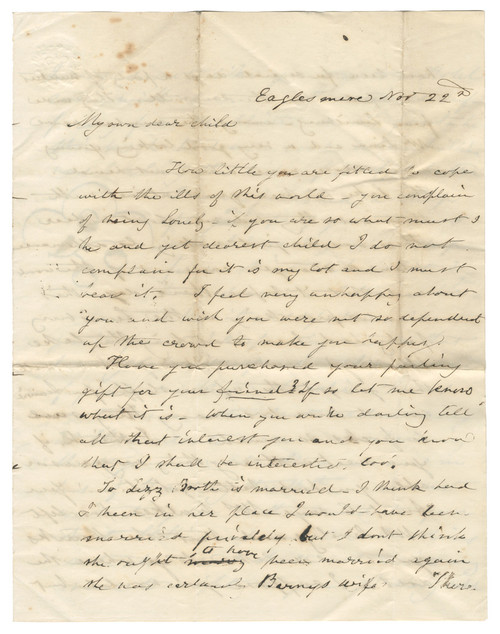 Eaglesmere Nov 22nd
My own dear child
How little you are fitted to cope
with the ills of this world - you complain
of being lonely - if you are so what must I
be and yet dearest child I do not
complain for it is my lot and I must
bear it. I feel very unhappy about
you and wish you were not so dependent
up the crowd to make you happy.
Have you purchased your parting
gift for your friend? If so let me know
what it is - When you write darling tell
all that interest you and you know
that I shall be interested, too.
So Lizzy is married - I think had
I been in her place I would have been
married privately but I dont think
she ought to have been married again
she was certainly Barnys wife. There